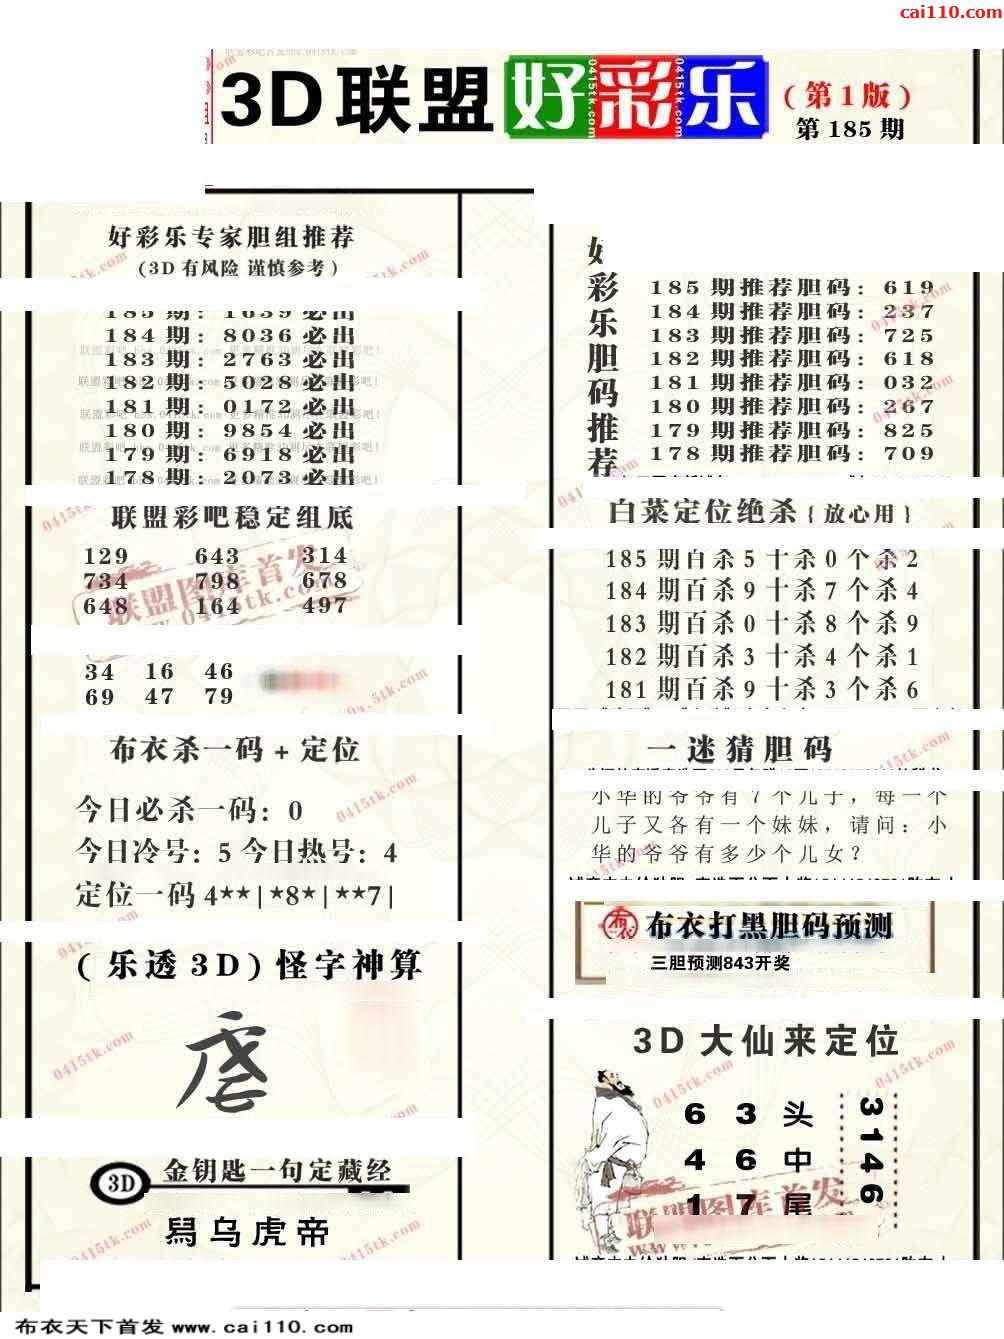 cai110.com
3D联盟好彩乐
(第1版)
第185期
好彩乐专家胆组推荐
(3D有风险 谨慎参考)
185期: 1639必出
184期: 8036必出
183期: 2763必出
182期: 5028必出
181期: 0172必出
180期: 9854必出
179期: 6918必出
178期: 2073必出
联盟彩吧稳定组底
129 643 314
734 798 678
648 164 497
34 16 46
69 47 79
布衣杀一码+定位
今日必杀一码: 0
今日冷号: 5 今日热号: 4
定位一码4**|*8*|**7|
(乐透3D)怪字神算
3D
金钥匙一句定藏经
舄乌虎帝
好彩乐胆码推荐
185期推荐胆码: 619
184期推荐胆码: 237
183期推荐胆码: 725
182期推荐胆码: 618
181期推荐胆码: 032
180期推荐胆码: 267
179期推荐胆码: 825
178期推荐胆码: 709
白菜定位绝杀{放心用}
185期百杀5十杀0个杀2
184期百杀9十杀7个杀4
183期百杀0十杀8个杀9
182期百杀3十杀4个杀1
181期百杀9十杀3个杀6
一迷猜胆码
小华的爷爷有7个儿子，每一个
儿子又各有一个妹妹，请问：小
华的爷爷有多少个儿女？
布衣
布衣打黑胆码预测
三胆预测843开奖
3D大仙来定位
6 3 头
4 6 中
1 7 尾
3146
联盟图库首发
布衣天下首发 www.cai110.com